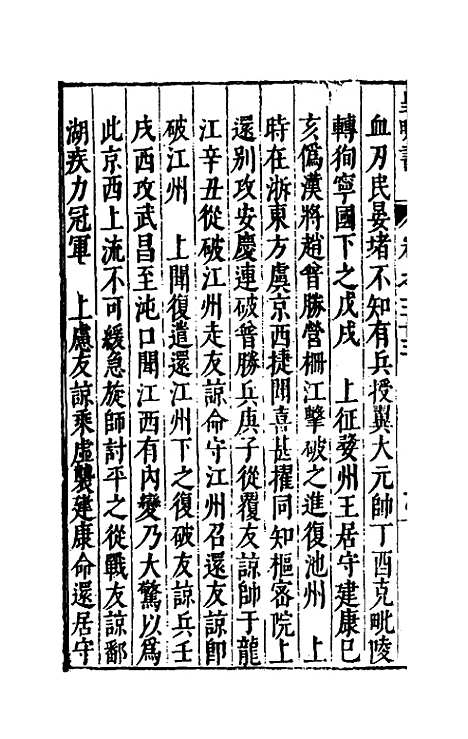 血刃民晏堵不知有兵授翼大元帥丁酉克毗陵
轉狥寧國下之戊戌　上征婺州王居守建康已
亥僞漢將趙普勝營柵江擊破之進復池州　上
時在浙東方虞京西捷聞喜甚擢同知樞密院上
還别攻安慶連破普勝兵庚子從覆友諒師于龍
江辛丑從破江州走友諒命守江州召還友諒卽
破江州　上聞復遣還江州下之復破友諒兵壬
戌西攻武昌至沌口聞江西有内變乃大驚以爲
此京西上流不可緩急旋師討平之從戰友諒鄱
湖疾力冠軍　上慮友諒乘虛襲建康命還居守